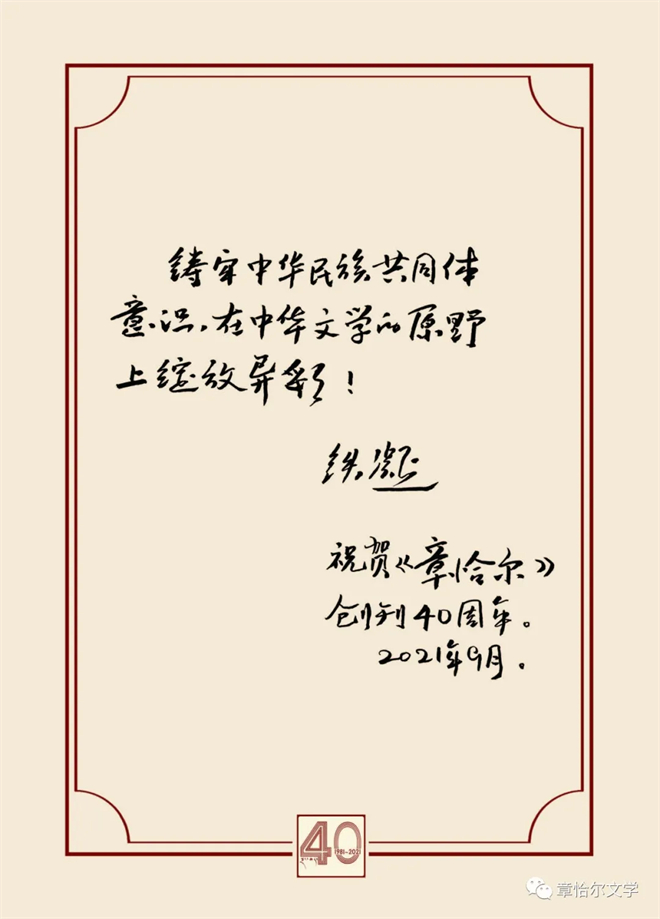 铸牢中华民族共同体
意识，在中华文学的原野
上绽放异彩！
铁凝
祝贺《章恰尔》
创刊40周年。
2021年9月.
40
1981-2021
章恰尔文学